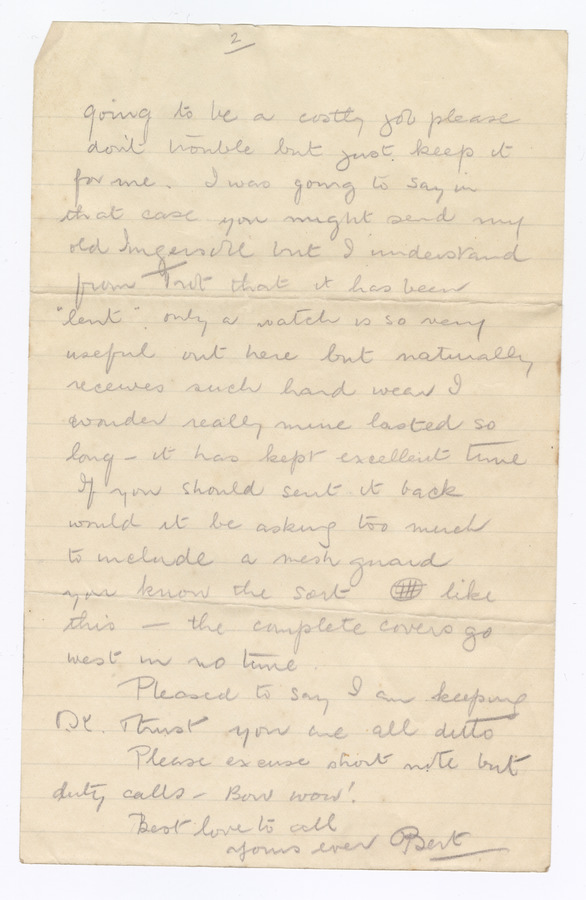 2
going to be a costly job please
don't trouble but just keep it
for me. I was going to say in
that case you might send my
old Ingersoll but I understand
from that it has been
"lent". only a watch is so very
useful out here but naturally
receives such hard wear I
wonder really mine lasted so
long - it has kept excellent time
If you should sent it back
would it be asking too much
to include a mesh guard
you know the sort like
this — the complete covers go
west in no time.
Pleased to say I am keeping
O.K. Thrust you are all ditto
Please excuse short note but
duty calls - Bow wow!
Best love to all
yours ever Bert